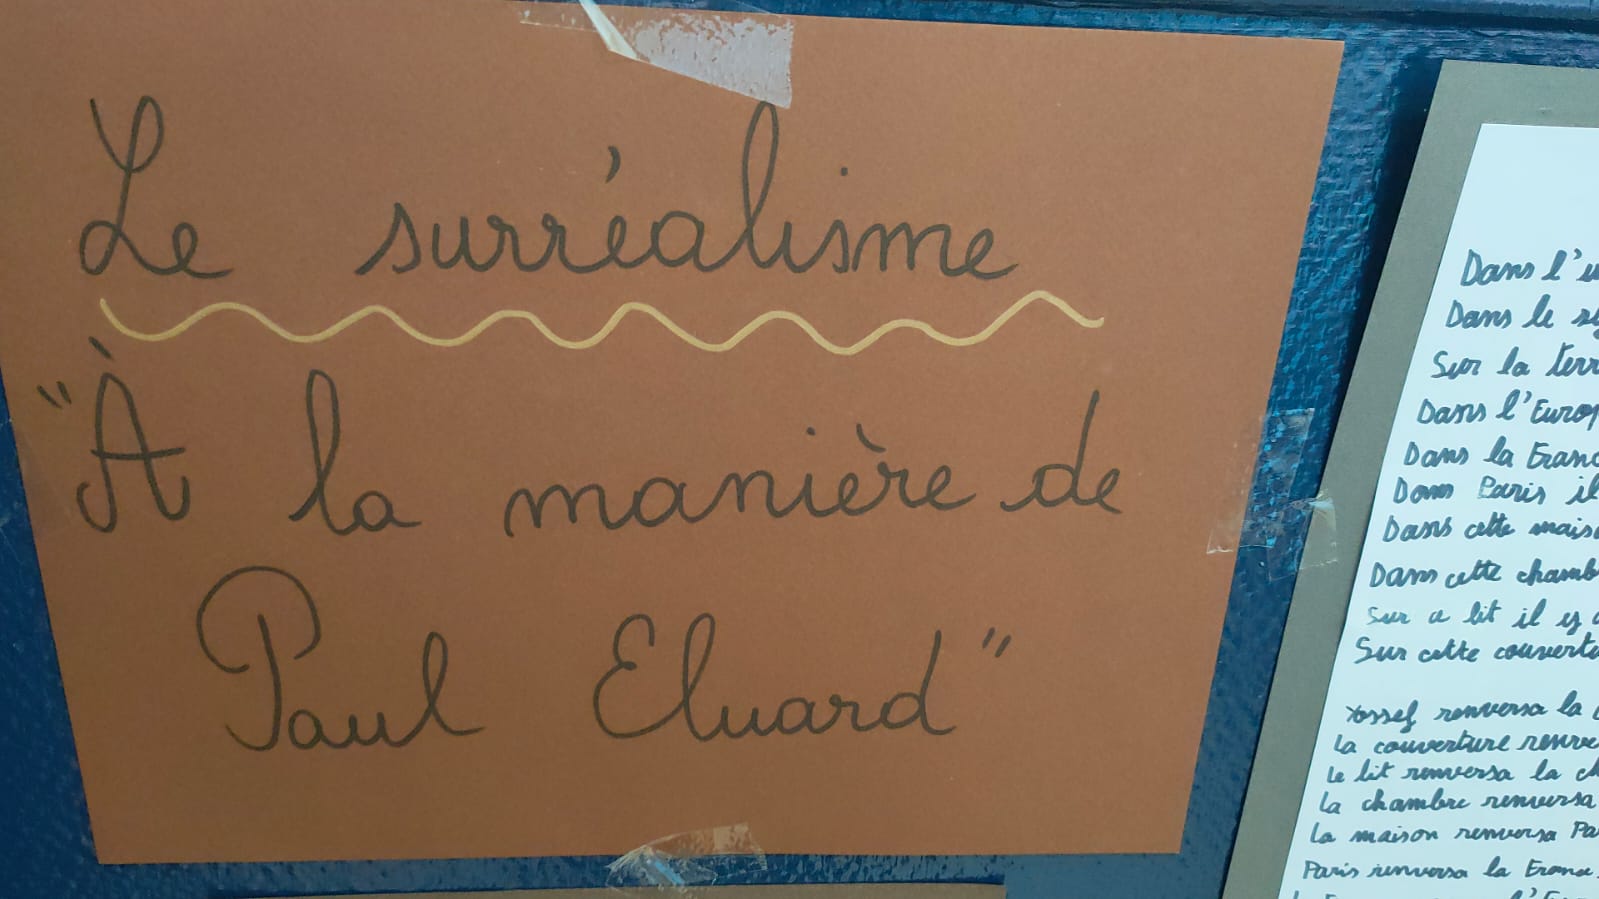 Le surréalisme
"À la manière de
Paul Eluard"
Dans l'u
Dans le sy
Sur la terr
Dans l'Europ
Dans la Franc
Dans Paris il
Dans cette mais
Dans cette chamb
Sur ce lit il y a
Sur cette couvertu
Yossef renversa la
La couverture renve
Le lit renversa la ch
La chambre renversa
La maison renversa Pa
Paris renversa la France